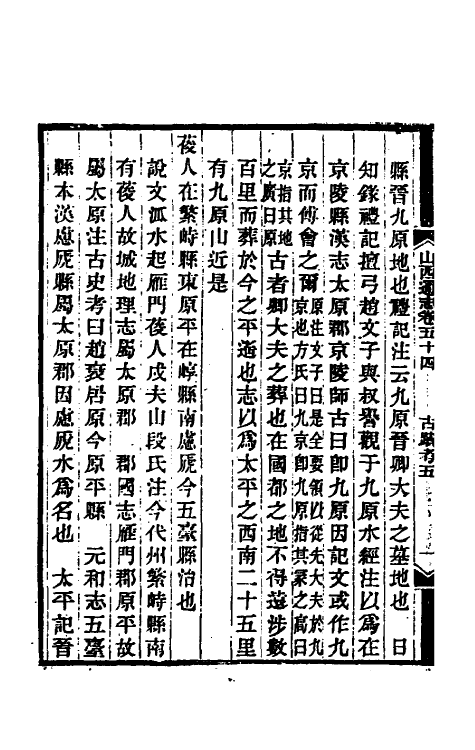 山西通志卷五十四　古蹟考五
縣晉九原地也禮記注云九原晉卿大夫之墓地也　日
知錄禮記檀弓趙文子與叔譽觀于九原水經注以爲在
京陵縣漢志太原郡京陵師古曰卽九原因記文或作九
京而傅會之爾
原注文子曰是全要領以從先大夫於九
京地方氏曰九京卽九原指其冢之高曰
京指其地
之廣曰原
古者卿大夫之葬也在國都之地不得遠涉數
百里而葬於今之平遙也志以爲太平之西南二十五里
有九原山近是
葰人在繁峙縣東原平在崞縣南慮虒今五臺縣治也
說文泒水起雁門葰人戍夫山段氏注今代州繁峙縣南
有葰人故城地理志屬太原郡　郡國志雁門郡原平故
屬太原注古史考曰趙衰居原今原平縣　元和志五臺
縣本漢慮虒縣屬太原郡因慮虒水爲名也　太平記晉